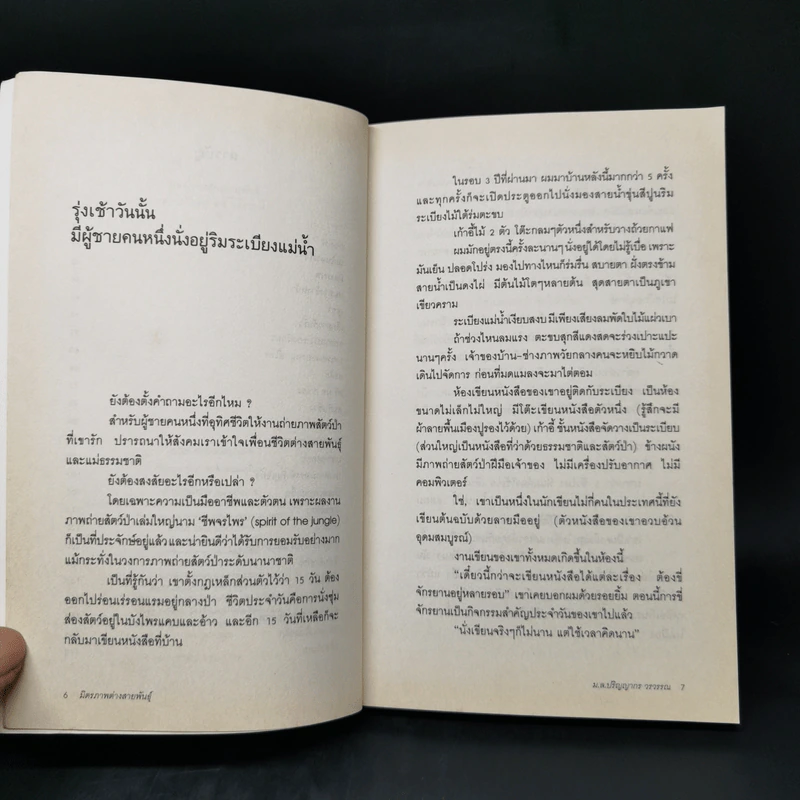 รุ่งเช้าวันนั้น
มีผู้ชายคนหนึ่งนั่งอยู่ริมระเบียงแม่น้ำ
ยังต้องตั้งคำถามอะไรอีกไหม ?
สำหรับผู้ชายคนหนึ่งที่อุทิศชีวิตให้งานถ่ายภาพสัตว์ป่า
ที่เขารัก ปรารถนาให้สังคมเราเข้าใจเพื่อนชีวิตต่างสายพันธุ์
และแม่ธรรมชาติ
ยังต้องสงสัยอะไรอีกหรือเปล่า ?
โดยเฉพาะความเป็นมืออาชีพและตัวตน เพราะผลงาน
ภาพถ่ายสัตว์ป่าเล่มใหญ่นาม ‘ชีพจรไพร’ (spirit of the jungle)
ก็เป็นที่ประจักษ์อยู่แล้ว และน่ายินดีว่าได้รับการยอมรับอย่างมาก
แม้กระทั่งในวงการภาพถ่ายสัตว์ป่าระดับนานาชาติ
เป็นที่รู้กันว่า เขาตั้งกฎเหล็กส่วนตัวไว้ว่า 15 วัน ต้อง
ออกไปร่อนเร่รอนแรมอยู่กลางป่า ชีวิตประจำวันคือการนั่งซุ่ม
ส่องสัตว์อยู่ในบังไพรแคบและอ้าว และอีก 15 วันที่เหลือก็จะ
กลับมาเขียนหนังสือที่บ้าน
6 มิตรภาพต่างสายพันธุ์
ในรอบ 3 ปีที่ผ่านมา ผมมาบ้านหลังนี้มากกว่า 5 ครั้ง
และทุกครั้งก็จะเปิดประตูออกไปนั่งมองสายน้ำขุ่นสีปูนริม
ระเบียงไม้ใต้ร่มตะขบ
เก้าอี้ไม้ 2 ตัว โต๊ะกลมๆตัวหนึ่งสำหรับวางถ้วยกาแฟ
ผมมักอยู่ตรงนี้ครั้งละนานๆ นั่งอยู่ได้โดยไม่รู้เบื่อ เพราะ
มันเย็น ปลอดโปร่ง มองไปทางไหนก็ร่มรื่น สบายตา ฝั่งตรงข้าม
สายน้ำเป็นดงไผ่ มีต้นไม้ใตๆหลายต้น สุดสายตาเป็นภูเขา
เขียวคราม
ระเบียงแม่น้ำเงียบสงบ มีเพียงเสียงลมพัดใบไม้แผ่วเบา
ถ้าช่วงไหนลมแรง ตะขบสุกสีแดงสดจะร่วงเปาะแปะ
นานๆครั้ง เจ้าของบ้าน-ช่างภาพวัยกลางคนจะหยิบไม้กวาด
เดินไปจัดการ ก่อนที่มดแมลงจะมาไต่ตอม
ห้องเขียนหนังสือของเขาอยู่ติดกับระเบียง เป็นห้อง
ขนาดไม่เล็กไม่ใหญ่ มีโต๊ะเขียนหนังสือตัวหนึ่ง (รู้สึกจะมี
ผ้าลายพื้นเมืองปูรองไว้ด้วย) เก้าอี้ ชั้นหนังสือจัดวางเป็นระเบียบ
(ส่วนใหญ่เป็นหนังสือที่ว่าด้วยธรรมชาติและสัตว์ป่า) ข้างผนัง
มีภาพถ่ายสัตว์ป่าฝีมือเจ้าของ ไม่มีเครื่องปรับอากาศ ไม่มี
คอมพิวเตอร์
ใช่, เขาเป็นหนึ่งในนักเขียนไม่กี่คนในประเทศนี้ที่ยัง
เขียนต้นฉบับด้วยลายมืออยู่ (ตัวหนังสือของเขาอวบอ้วน
อุดมสมบูรณ์)
งานเขียนของเขาทั้งหมดเกิดขึ้นในห้องนี้
“เดี๋ยวนี้กว่าจะเขียนหนังสือได้แต่ละเรื่อง ต้องขี่
จักรยานอยู่หลายรอบ” เขาเคยบอกผมด้วยรอยยิ้ม ตอนนี้การขี่
จักรยานเป็นกิจกรรมสำคัญประจำวันของเขาไปแล้ว
“นั่งเขียนจริงๆก็ไม่นาน แต่ใช้เวลาคิดนาน”
ม.ล.ปริญญากร วรวรรณ 7